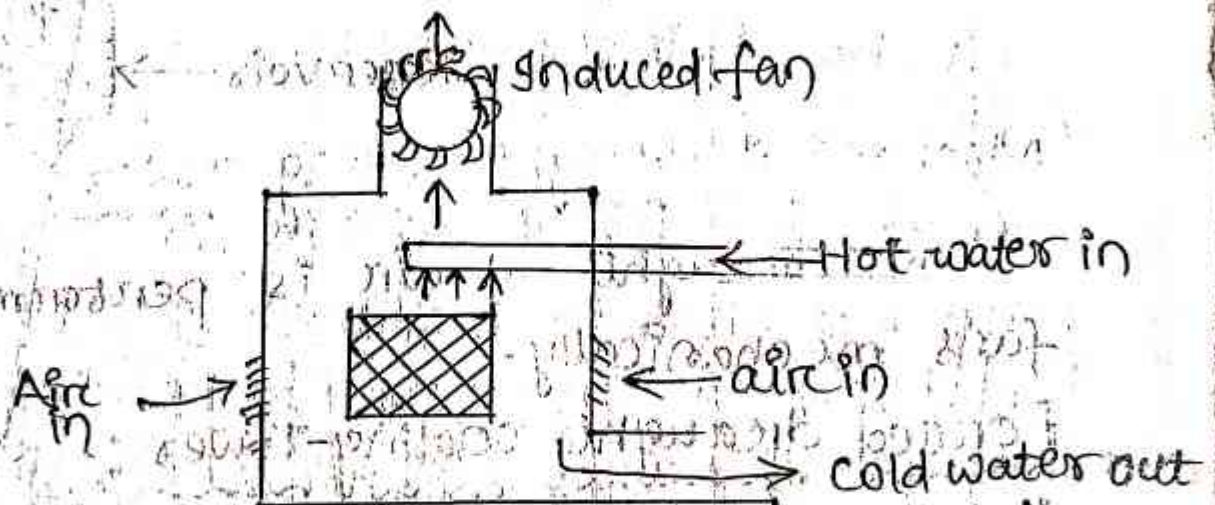 Induced fan
Hot water in
Airc
in
airc in
cold water out